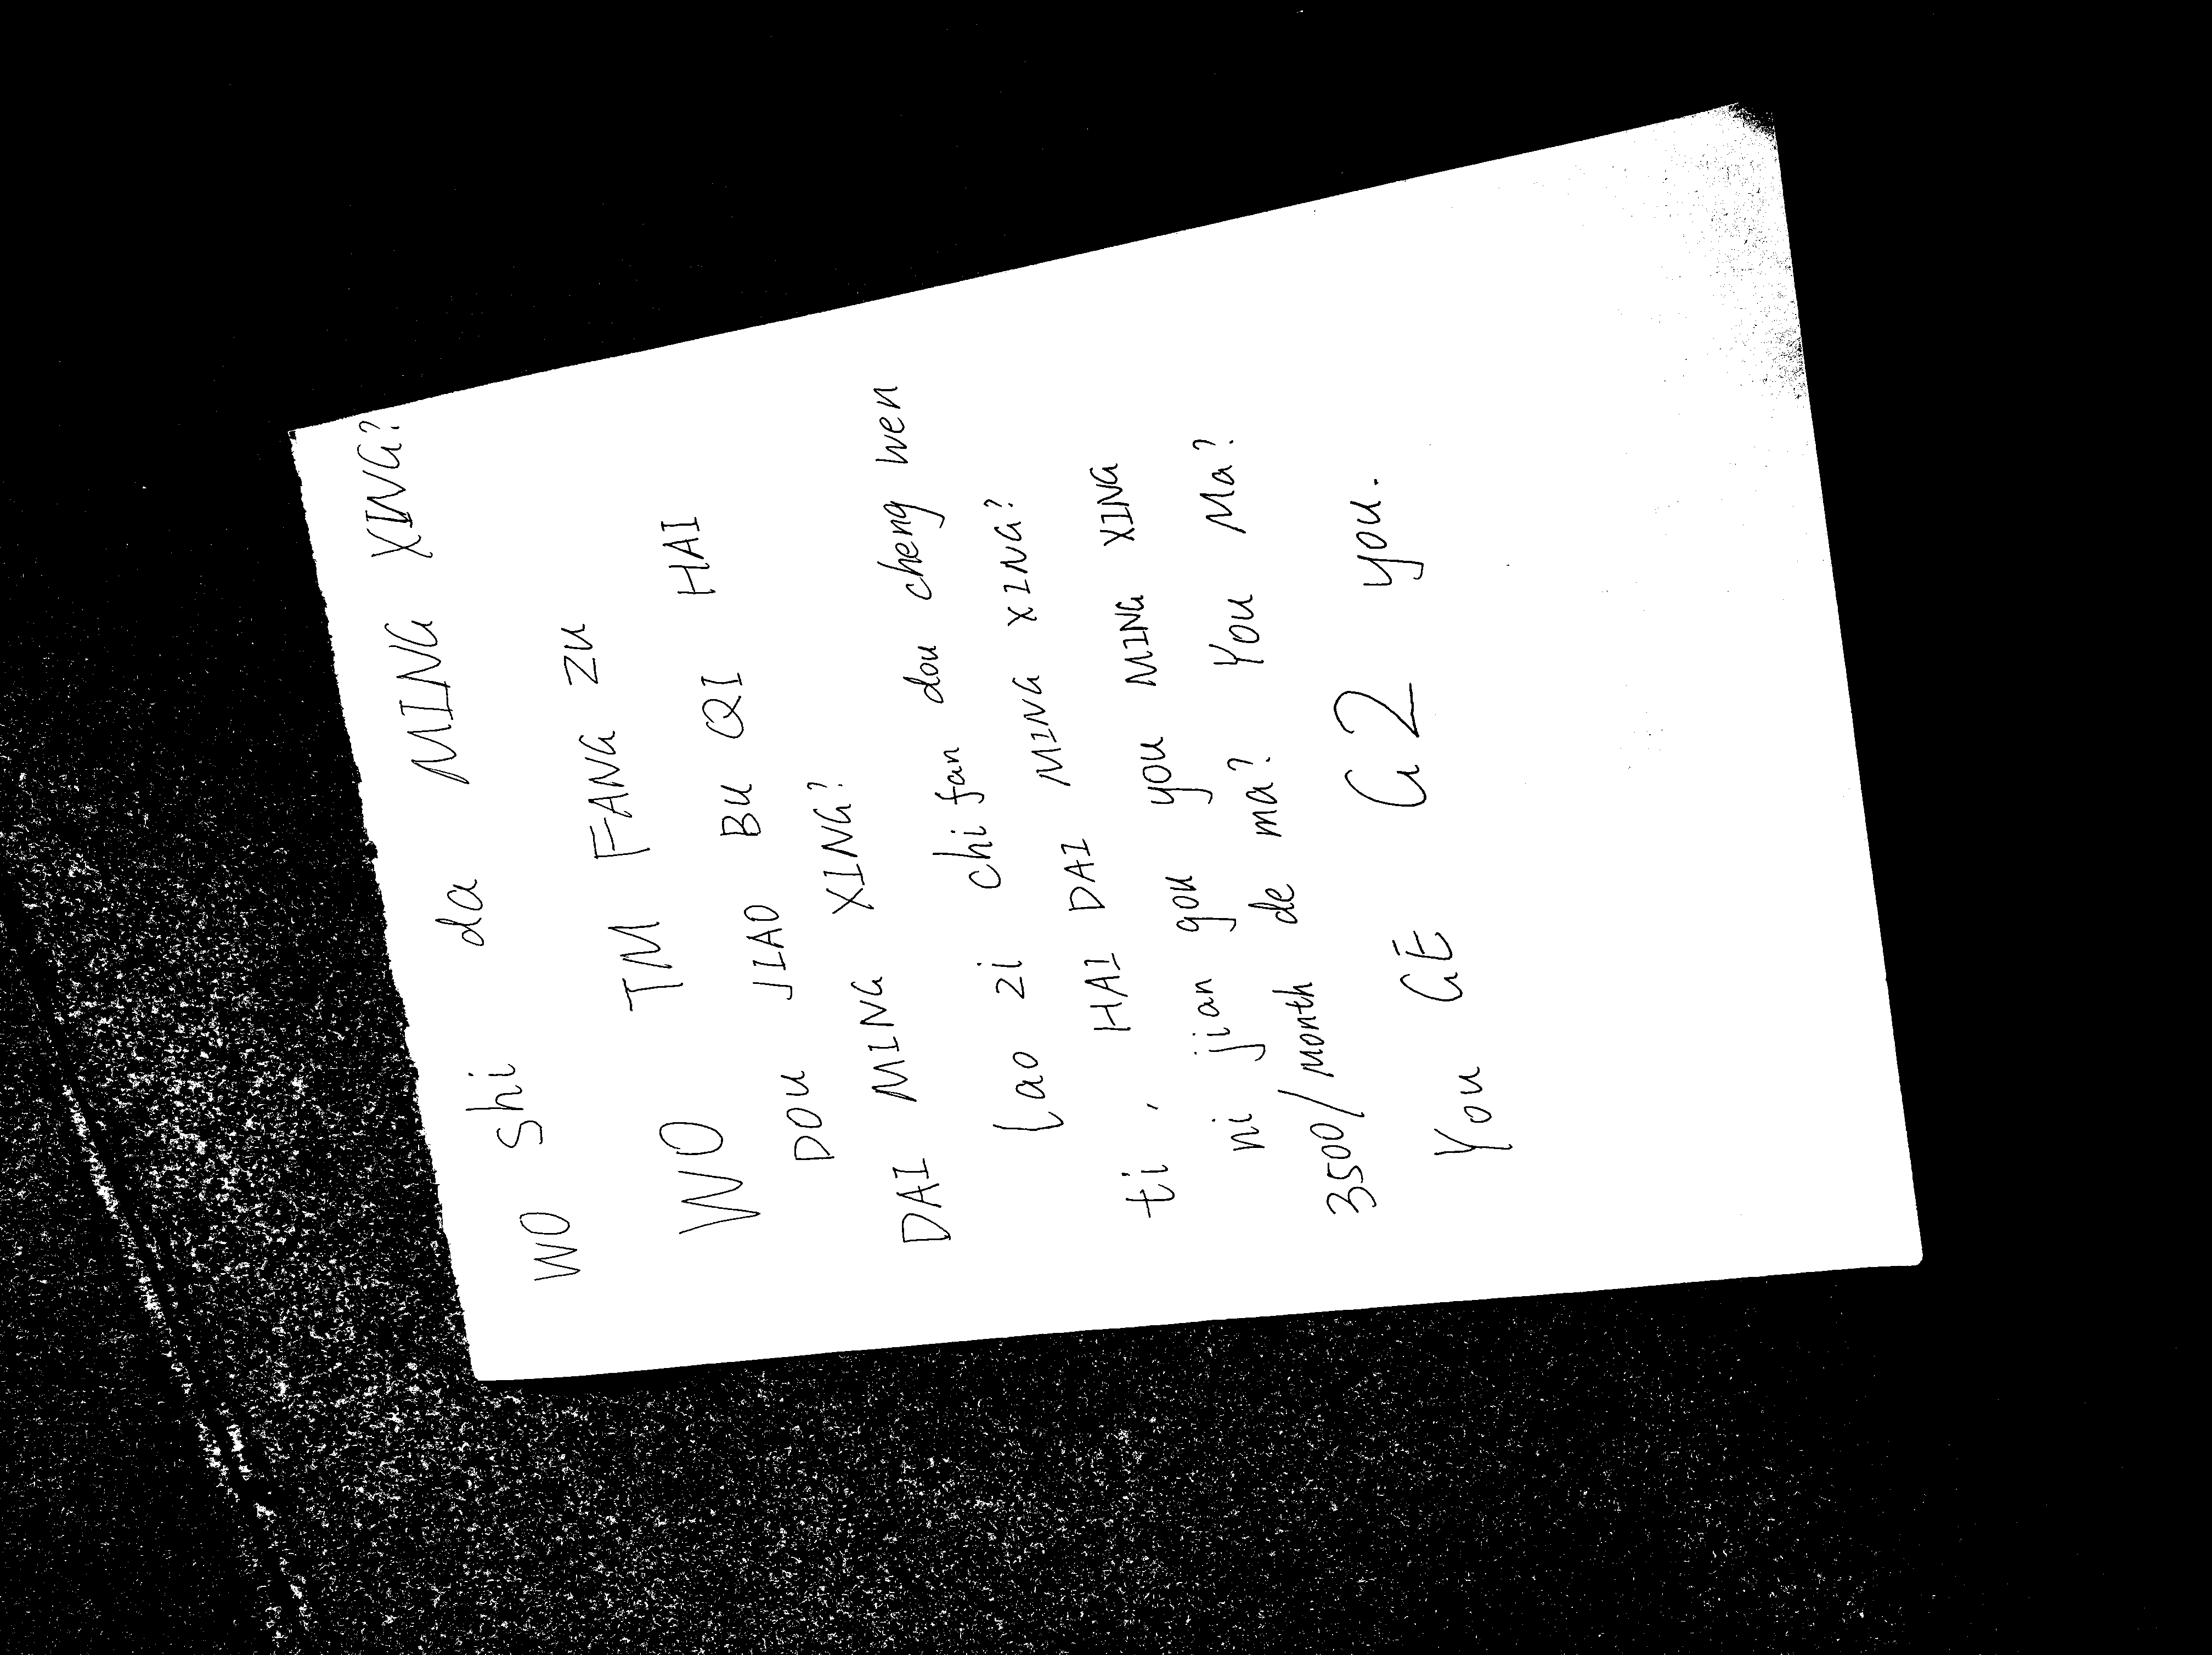 WO shi da MING XING?
WO TM FANG ZU
DOU JIAO BU QI HAI
DAI MING XING?
Lao zi chi fan dou cheng wen
ti, HAI DAI MING XING?
ni jian gou you MING XING
3500/month de ma? You Ma?
You GE G2 you.